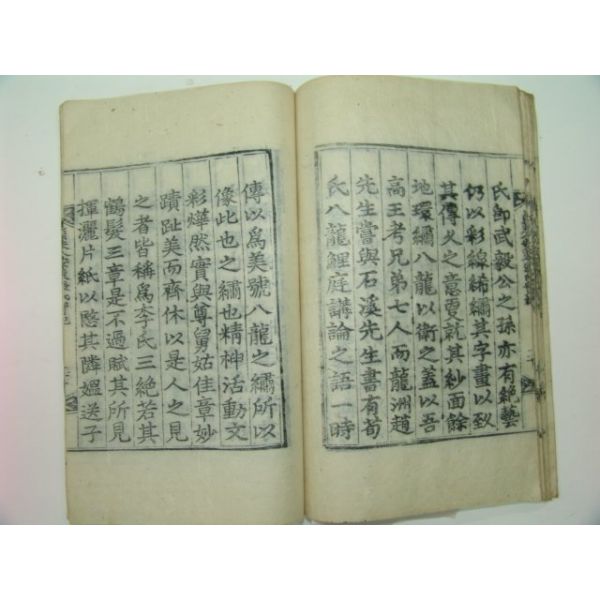 氏卽武毅公之孫亦有絶藝
仍以彩線絺繡其字畫以致
其傳久之意更就其紗面餘
地環繡八龍以衛之蓋以吾
高王考兄弟七人而龍洲趙
先生嘗與石溪先生書有荀
氏八龍鯉庭講論之語一時
傳以爲美號八龍之繡所以
像此也之繡也精神活動文
彩燁然實與尊舅姑佳章妙
蹟趾美而齊休以是人之見
之者皆稱爲李氏三絶若其
鶴髮三章是不過賦其所見
揮灑片紙以慰其隣媼送子